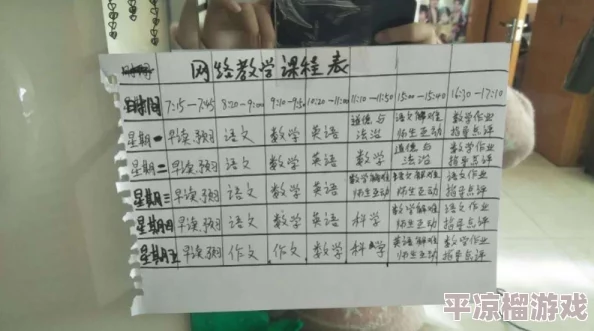 网络教学课程表
时间 7:15-7:45 8:20-9:00 9:10-9:50 10:20-11:00 11:10-11:50 15:00-15:40 16:30-17:10
星期一 早读、预习 语文 数学 英语 道德与法治 语文解难师生互动 数学作业指导点评
星期二 早读、预习 语文 数学 英语 数学 道德与法治 数学作业指导点评
星期三 早读、预习 语文 数学 英语 数学解难师生互动 语文解难师生互动 语文作业指导点评
星期四 早读、预习 语文 数学 英语 科学 数学解难师生互动 语文作业指导点评
星期五 早读、预习 作文 作文 数学 科学 英语解难师生互动 数学作业指导点评
平凉榴游戏